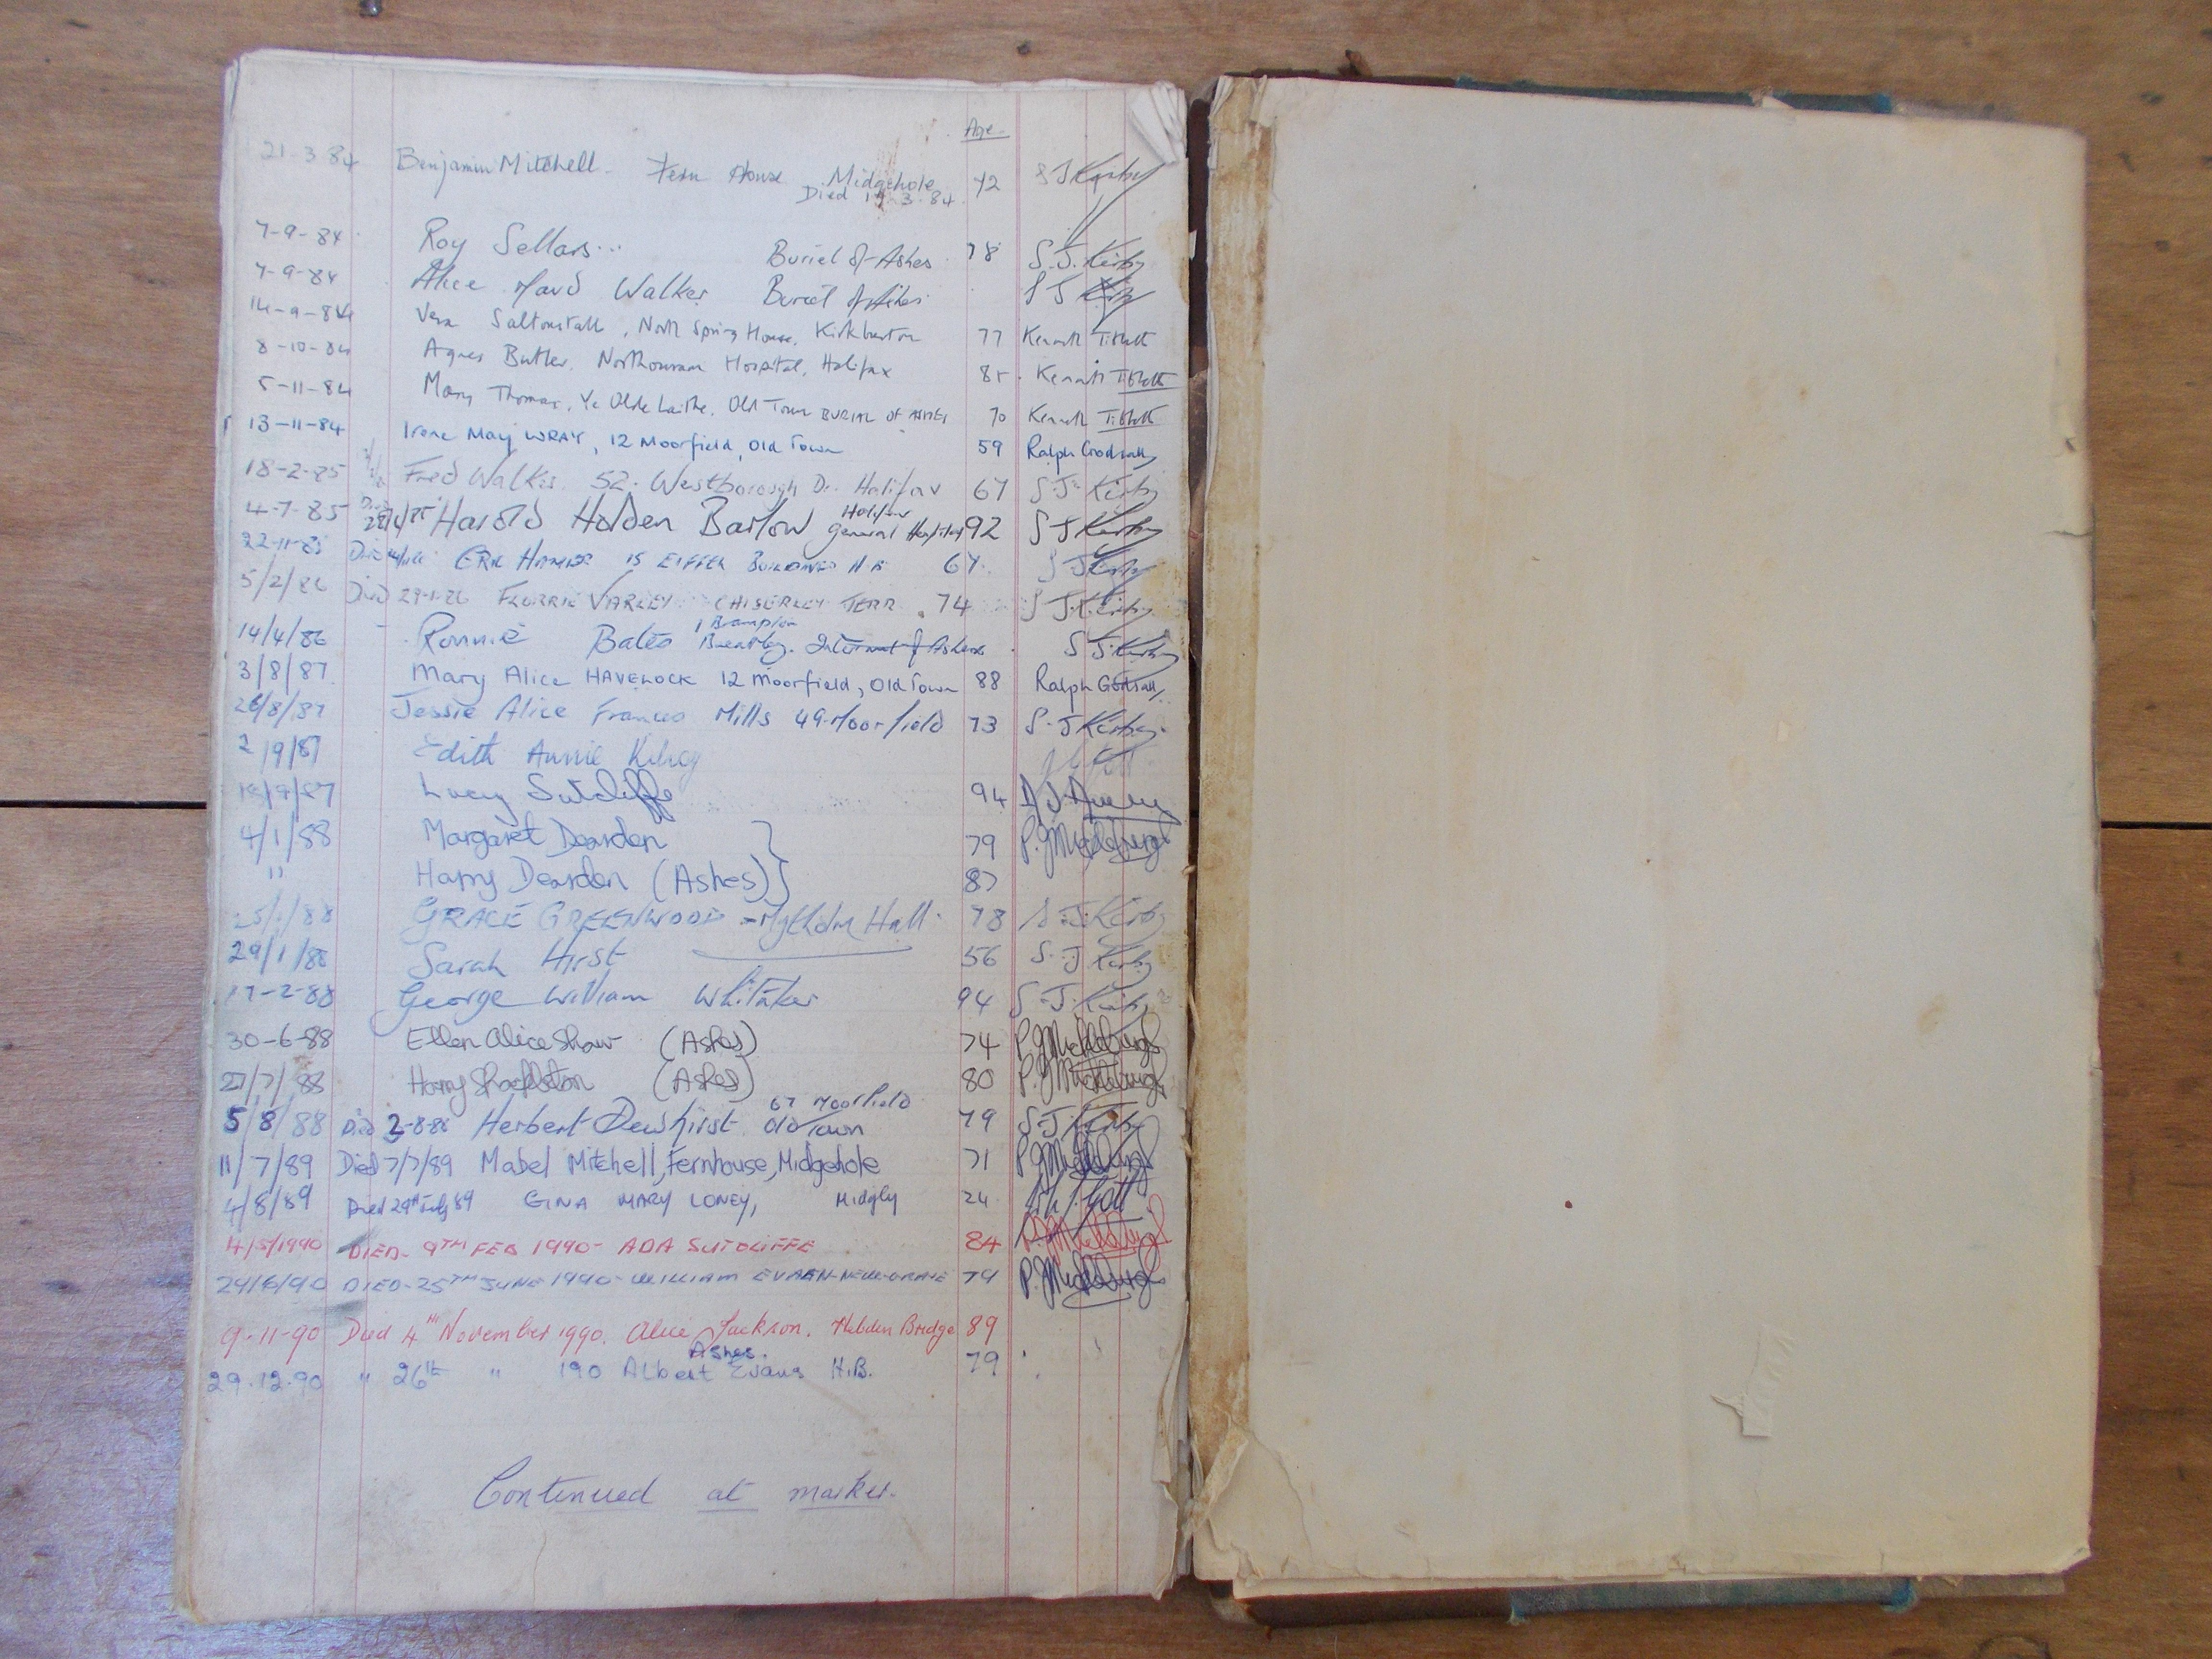 Age
21-3 84 Benjamin Mitchell - Fern House Midgehole 72 S J Kirby
Died 3. 84
7-9-84 Roy Sellars... Buriel of Ashes 78 S. J. Kirby
7-9-84 Alice Maud Walker Buriel of Ashes S J Kirby
14-9-84 Vera Saltonstall, North Spring House, Kirkburton 77 Kenneth Tibbott
8-10-84 Agnes Butler, Northowram Hospital, Halifax 85 Kenneth Tibbott
5-11-84 Mary Thomas, Ye Olde Laithe, Old Town BURIAL OF ASHES 70 Kenneth Tibbott
13-11-84 Irene May WRAY, 12 Moorfield, Old Town 59 Ralph Godsall
18-2-85 Fred Walker 52. Westborough Dr. Halifax 67 S. J. Kirby
4-7-85 Harold Holden Barlow Halifax General Hospital 92 S J Kirby
22-11-85 Died ERIC 15 EIFFEL BUILDINGS H B 67 S J Kirby
5/2/86 Died 29-1-86 FLORRIE VARLEY CHISERLEY TERR. 74 S J. Kirby
14/4/86 Ronnie Bates Brampton Interment of Ashes S J. Kirby
3/8/87 Mary Alice HAVELOCK 12 Moorfield, Old Town 88 Ralph Godsall
26/8/87 Jessie Alice Frances Mills 49 Moorfield 73 S. J Kirby
2/9/87 Edith Annie Kilroy
/9/87 Lucy Sutcliffe 94
4/1/88 Margaret Dearden } 79 P. J Middleburgh
" Harry Dearden (Ashes) } 87
25/1/88 GRACE GREENWOOD - Mytholm Hall. 78 S. J. Kirby
29/1/88 Sarah Hirst 56 S. J Kirby
17-2-88 George William Whitaker 94 S. J. Kirby
30-6-88 Ellen Alice Shaw (Ashes) 74 P. J Middleburgh
27/7/88 Harry Shackleton (Ashes) 80 P. J Middleburgh
5/8/88 Died 2-8-88 Herbert Dewhirst 67 Moorfield Old Town 79 S. J Kirby
11/7/89 Died 7/7/89 Mabel Mitchell, Fernhouse, Midgehole 71 P. J Middleburgh
4/8/89 Died 29th July 89 GINA MARY LONEY, Midgly 24
4/5/1990 DIED - 9TH FEB 1990 - ADA SUTCLIFFE 84 P. J Middleburgh
29/6/90 DIED - 25TH JUNE 1990 - WILLIAM 79 P. J Middleburgh
9-11-90 Died 4th November 1990. Alice Jackson. Hebden Bridge 89
Ashes.
29.12.90 " 26th " 190 Albert Evans H.B. 79
Continued at marker.